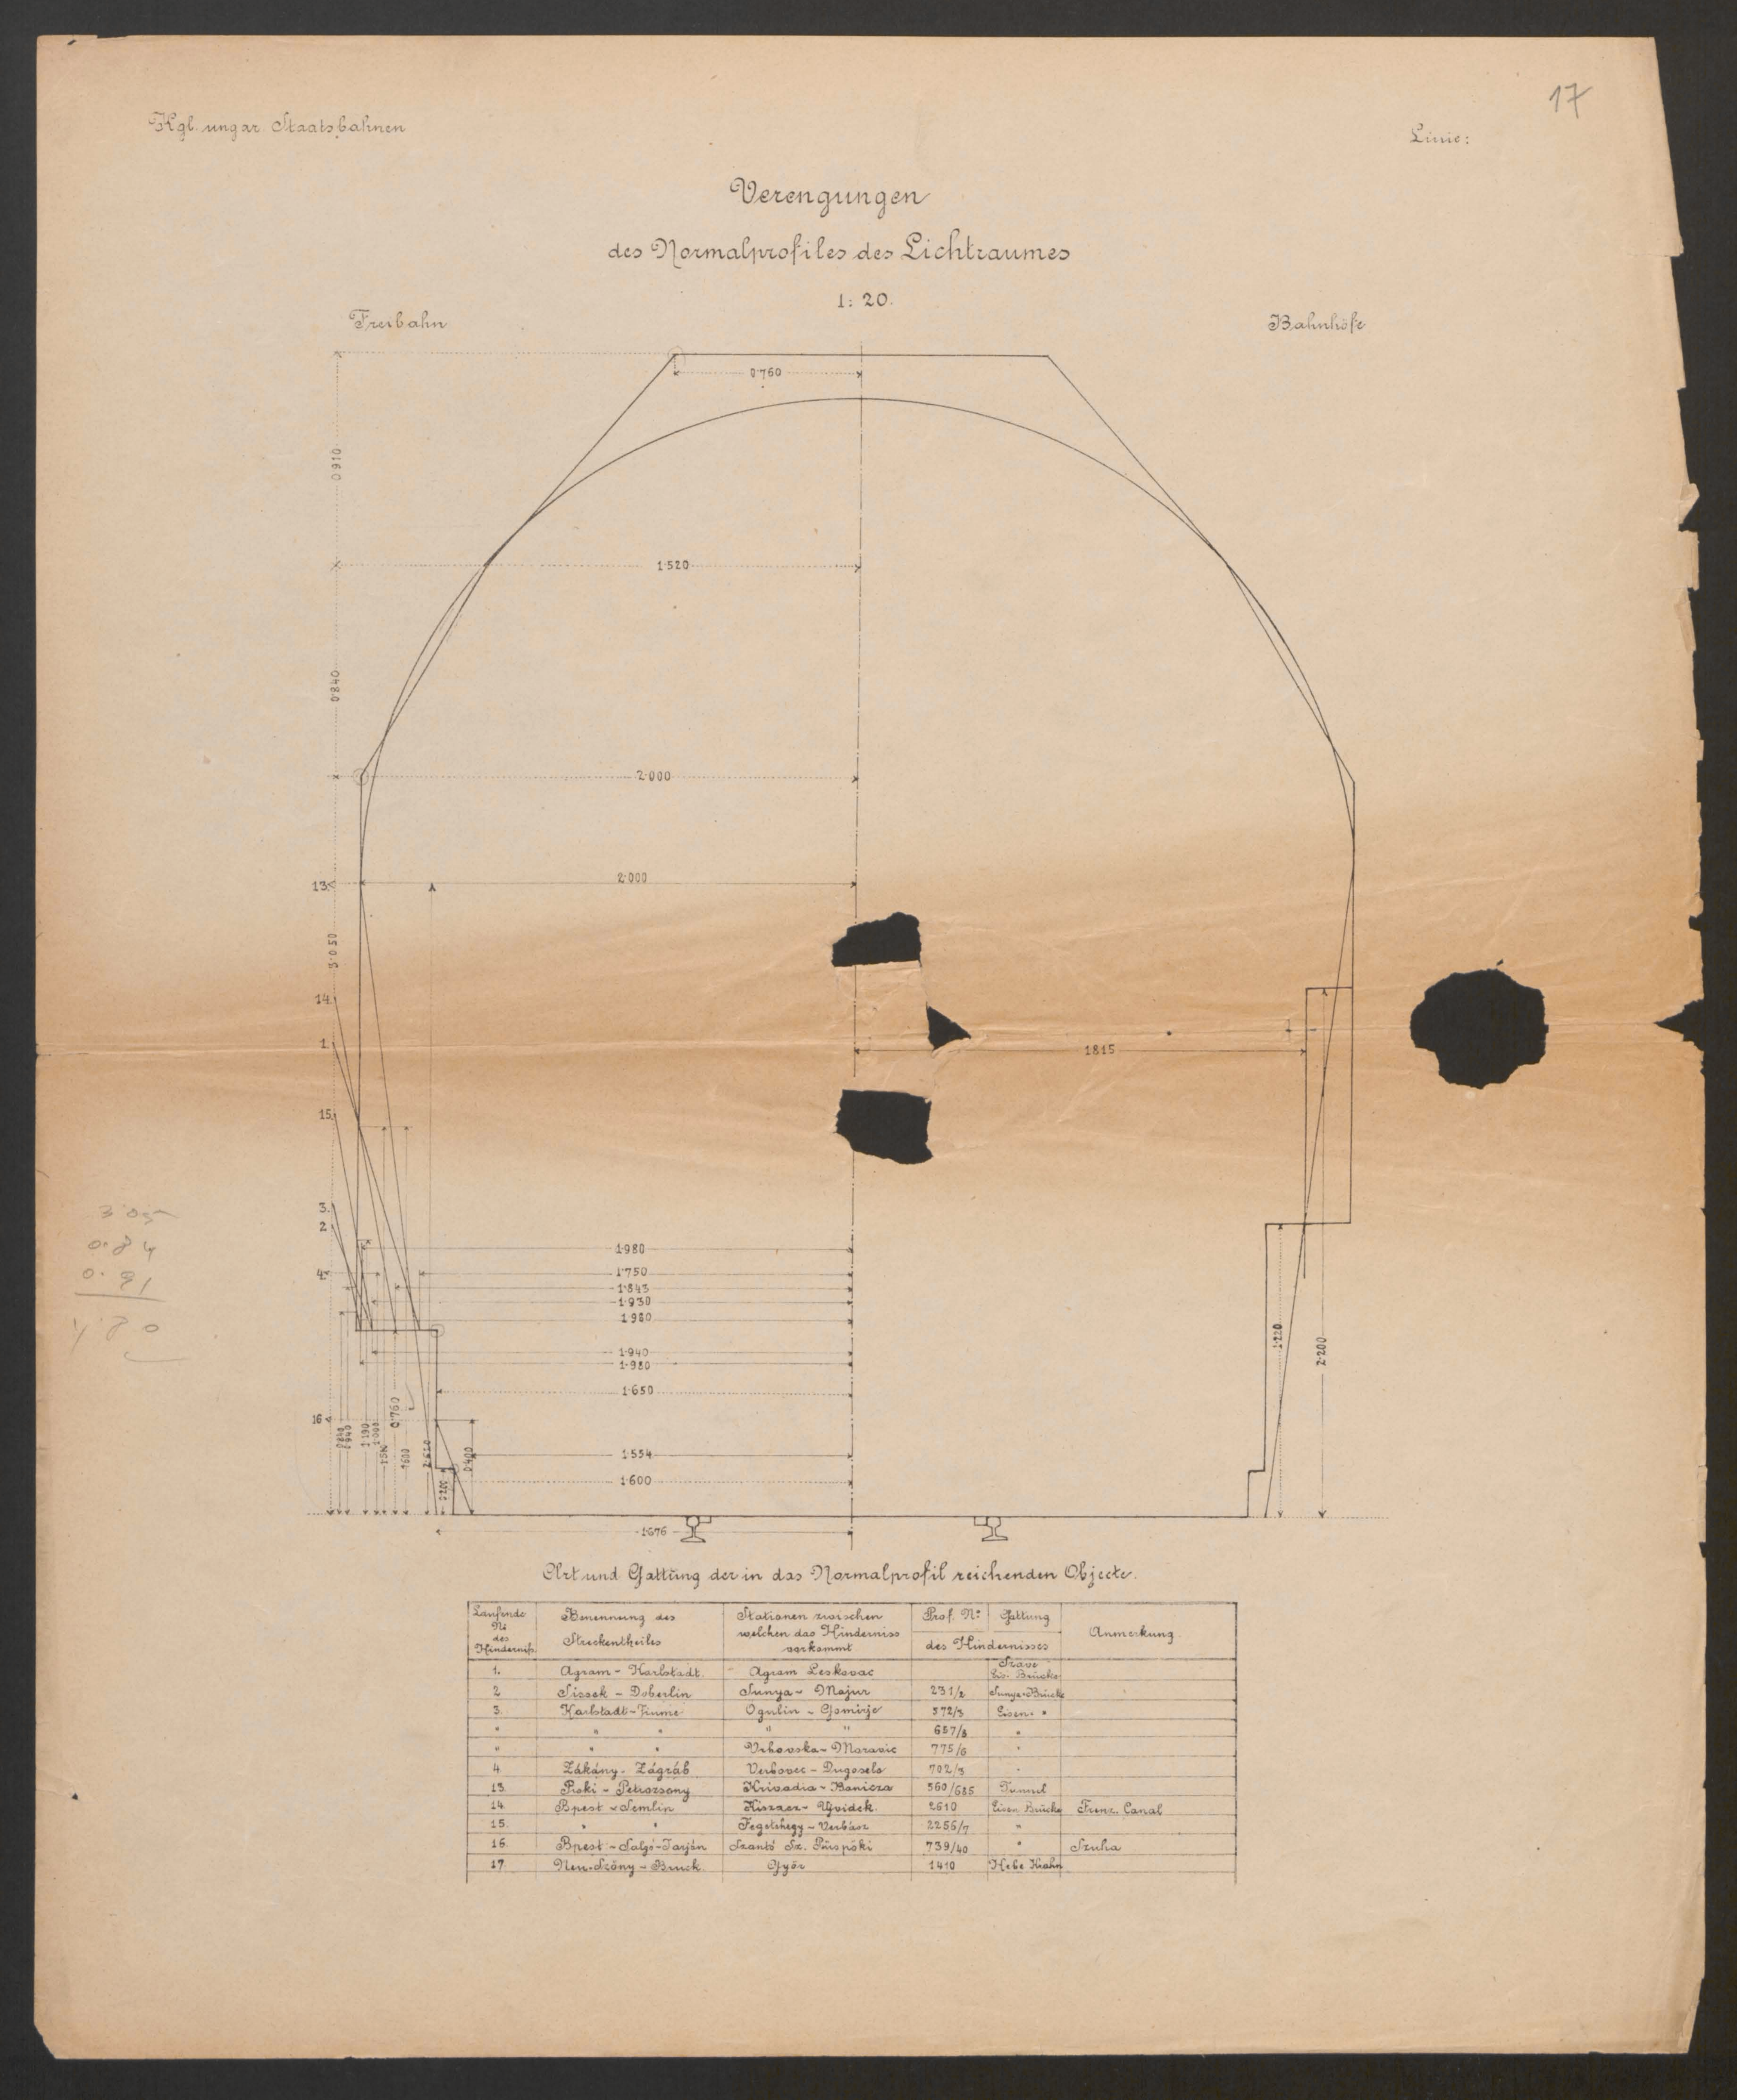 17
Kgl. ungar. Staatsbahnen
Linie:
Verengungen
des Normalprofiles des Lichtraumes
1:20.
Freibahn
Bahnhöfe
0·760
0·910
1·520
0·840
2·000
13.
2·000
3·050
14.
1.
1815
15.
3.
2.
3·05
0·84
0·91
4·80
1·980
4.
1·750
1·843
1·930
1·940
1·980
1·650
0·760
16
1·554
0·400
1·600
0·200
1·220
2·200
1·676
Art und Gattung der in das Normalprofil reichenden Objecte.
Laufende No des Hinderniß. Benennung des Streckentheiles Stationen zwischen welchen das Hinderniss vorkommt Prof. No Gattung des Hindernisses Anmerkung
1. Agram - Karlstadt Agram Leskovac Save Eis. Brücke
2 Sissek - Doberlin Sunya - Majur 231/2 Sunya-Brücke
3. Karlstadt - Fiume Ogulin - Gomirje 572/3 Eisen. "
" " " " " 657/8 "
" " " Vrbovska - Moravic 775/6 "
4. Zákány - Zágráb Verbovec - Dugoselo 702/3 "
13. Piski - Petrozseny Krivadia - Banicza 560/685 Tunnel
14. Bpest - Semlin Kiszacz - Ujvidek 2610 Eisen. Brücke Franz. Canal
15. " " Fegetehegy - Verbász 2256/7 "
16. Bpest - Salgó-Tarján Szantó Sz. Püspöki 739/40 " Szuha
17. Neu-Szőny - Bruck. Győr 1410 Hebe Krahn